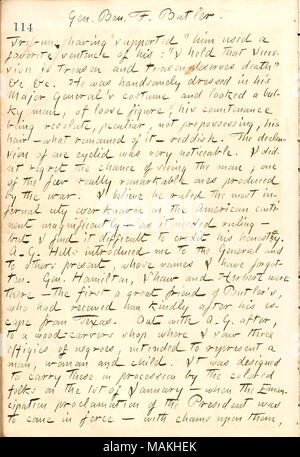 Gen. Ben. F. Butler.
114
Tribune, having "supported" him used a
favorite sentence of his: "I hold that Seces-
sion is treason and treason deserves death"
&c &c. He was handsomely dressed in his
Major General's costume and looked a bulky
man, of loose figure; his countenance
being resolute, peculiar, not prepossessing, his
hair — what remained of it — reddish. The declen-
sion of one eyelid was very noticeable. I did
not regret the chance of seeing the man, one
of the few really remarkable ones produced
by the war. I believe he ruled the most in-
fernal city ever known on the American conti-
nent magnificently — as it needed ruling —
but I find it difficult to credit his honesty.
A. G. Hills introduced me to the General and
to others present, whose names I have forgot-
ten. Gen. Hamilton, Shaw and Herbert were
there — the first a great friend of Butler's,
who had received him kindly after his es-
cape from Texas. Out with A. G. after,
to a wood-carver's shop where I saw three
effigies of negroes, intended to represent a
man, woman and child. It was designed
to carry these in procession by the colored
folks on the 1st of January — when the Eman-
cipation proclamation of the President was
to come in force — with chains upon them,
alamy
Image ID: MAKHEK
www.alamy.com